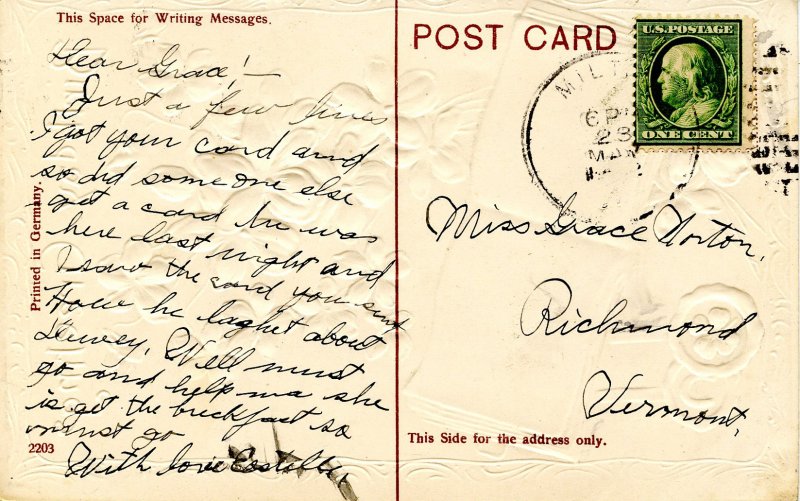 This Space for Writing Messages.
Dear Grace! —
Just a few lines
I got your card and
so did some one else
get a card he was
here last night and
I saw the card you sent
How he laghet about
Dewey. Well must
go and help ma she
is get the breckfast so
must go
With love
Printed in Germany.
2203
POST CARD
U.S. POSTAGE
ONE CENT
6 P
23
MAR
Miss Grace Norton,
Richmond
Vermont,
This Side for the address only.